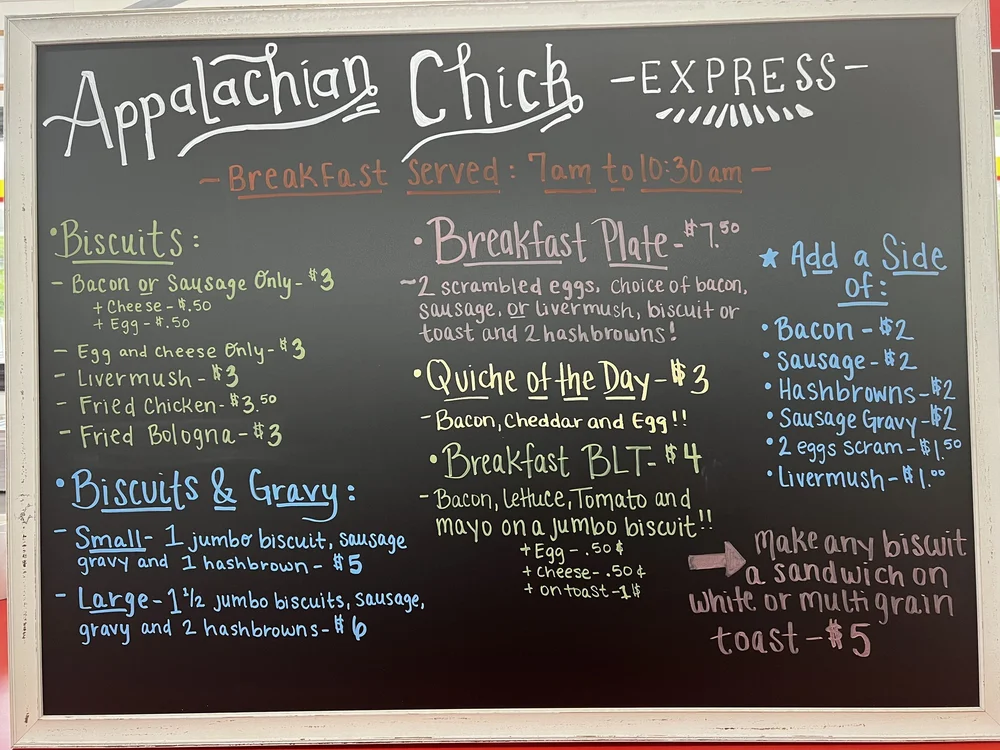 Appalachian Chick -EXPRESS-
- Breakfast served: 7am to 10:30am -
• Biscuits:
- Bacon or Sausage Only - $3
+ Cheese - $.50
+ Egg - $.50
- Egg and cheese Only - $3
- Livermush - $3
- Fried Chicken - $3.50
- Fried Bologna - $3
• Biscuits & Gravy:
- Small - 1 jumbo biscuit, sausage
gravy and 1 hashbrown - $5
- Large - 1 1/2 jumbo biscuits, sausage,
gravy and 2 hashbrowns - $6
• Breakfast Plate - $7.50
~2 scrambled eggs, choice of bacon,
sausage, or livermush, biscuit or
toast and 2 hashbrowns!
• Quiche of the Day - $3
- Bacon, Cheddar and Egg!!
• Breakfast BLT - $4
- Bacon, lettuce, Tomato and
mayo on a jumbo biscuit!!
+ Egg - .50¢
+ Cheese - .50¢
+ on toast - 1$
★ Add a Side
of:
• Bacon - $2
• Sausage - $2
• Hashbrowns - $2
• Sausage Gravy - $2
• 2 eggs scram - $1.50
• Livermush - $1.00
→ Make any biscuit
a sandwich on
white or multi grain
toast - $5